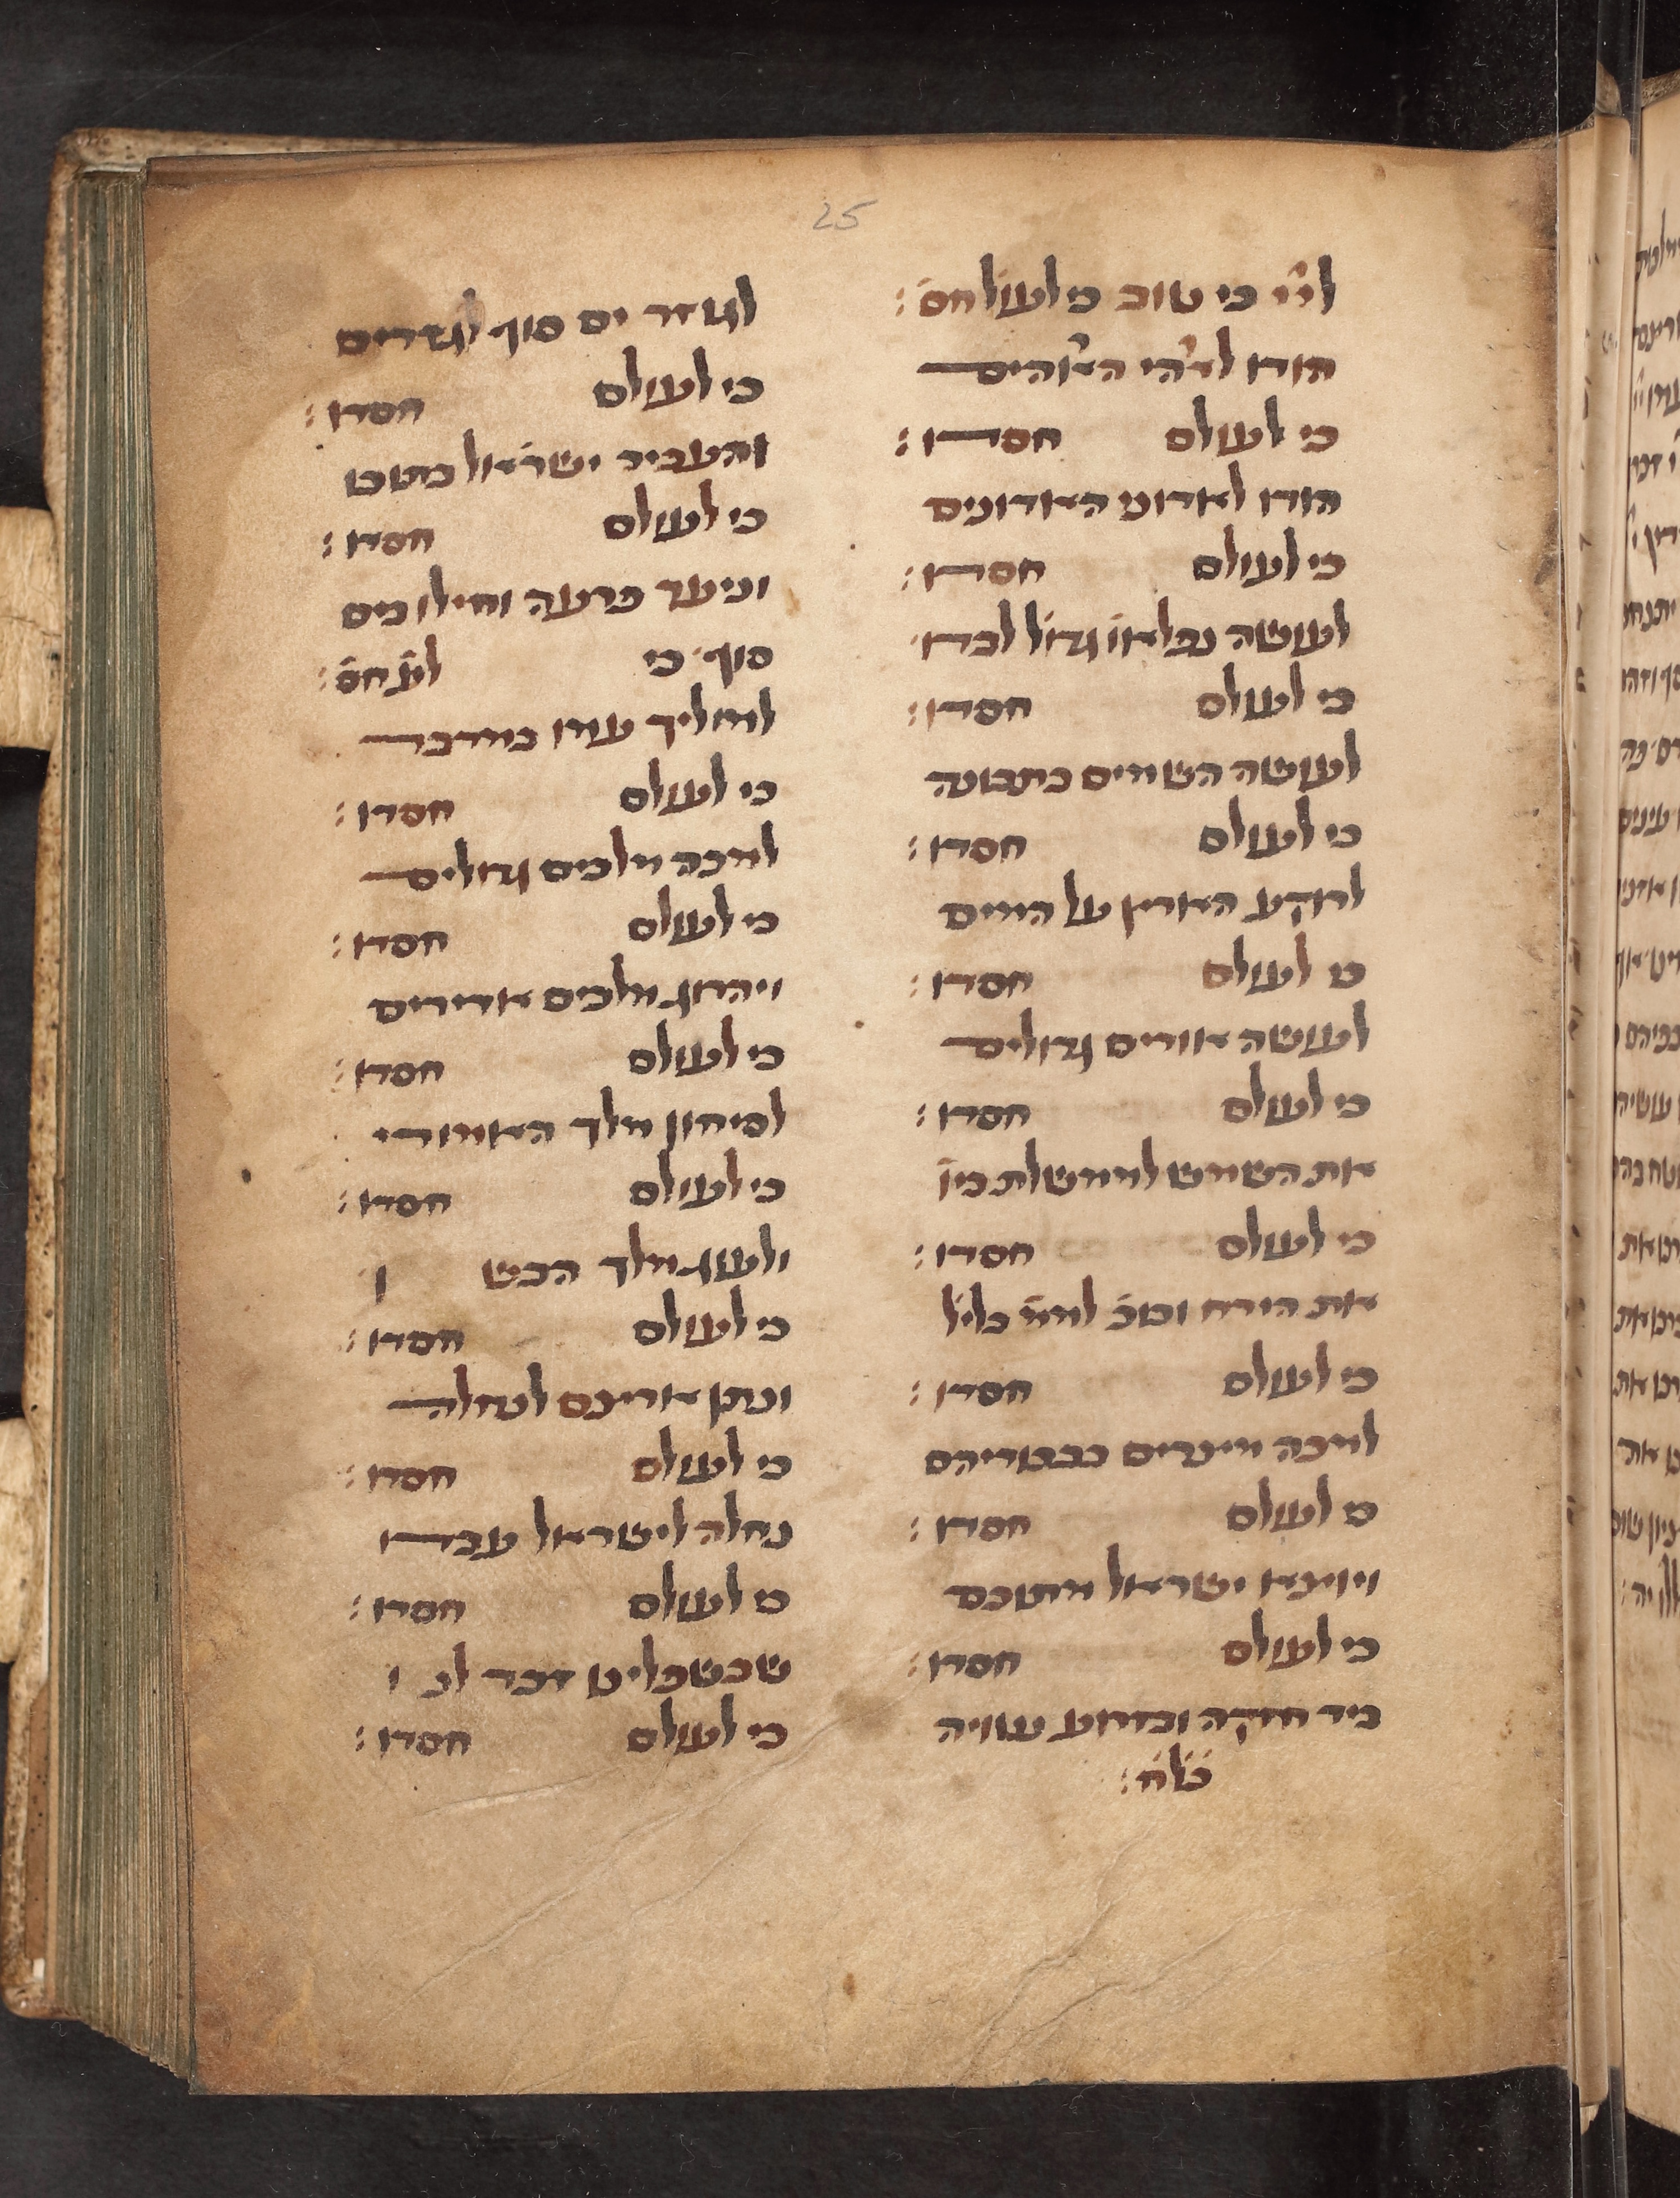 25
לייי כי טוב כי לעול חס׃
הודו לאלהי האלהים
כי לעולם חסדו׃
הודו לאדוני האדונים
כי לעולם חסדו׃
לעושה נפלאו גדול לבדו
כי לעולם חסדו׃
לעושה השמים בתבונה
כי לעולם חסדו׃
לרוקע הארץ על המים
כי לעולם חסדו׃
לעושה אורים גדולים
כי לעולם חסדו׃
את השמש לממשלת ביו
כי לעולם חסדו׃
את הירח וכוכ לממ בליל
כי לעולם חסדו׃
למכה מצרים בבכוריהם
כי לעולם חסדו׃
ויוצא ישראל מתוכם
כי לעולם חסדו׃
ביד חזקה ובזרוע נטויה
כלח׃
לגוזר ים סוף לגזרים
כי לעולם חסדו׃
והעביר ישראל בתוכו
כי לעולם חסדו׃
וניער פרעה וחילו בים
סוף כי לע חס׃
למוליך עמו במדבר
כי לעולם חסדו׃
למכה מלכים גדולים
כי לעולם חסדו׃
ויהרוג מלכים אדירים
כי לעולם חסדו׃
לסיחון מלך האמורי
כי לעולם חסדו׃
ולעוג מלך הבש ן
כי לעולם חסדו׃
ונתן ארצם לנחלה
כי לעולם חסדו׃
נחלה לישראל עבדו
כי לעולם חסדו׃
שבשפלינו זכר לנ ו
כי לעולם חסדו׃